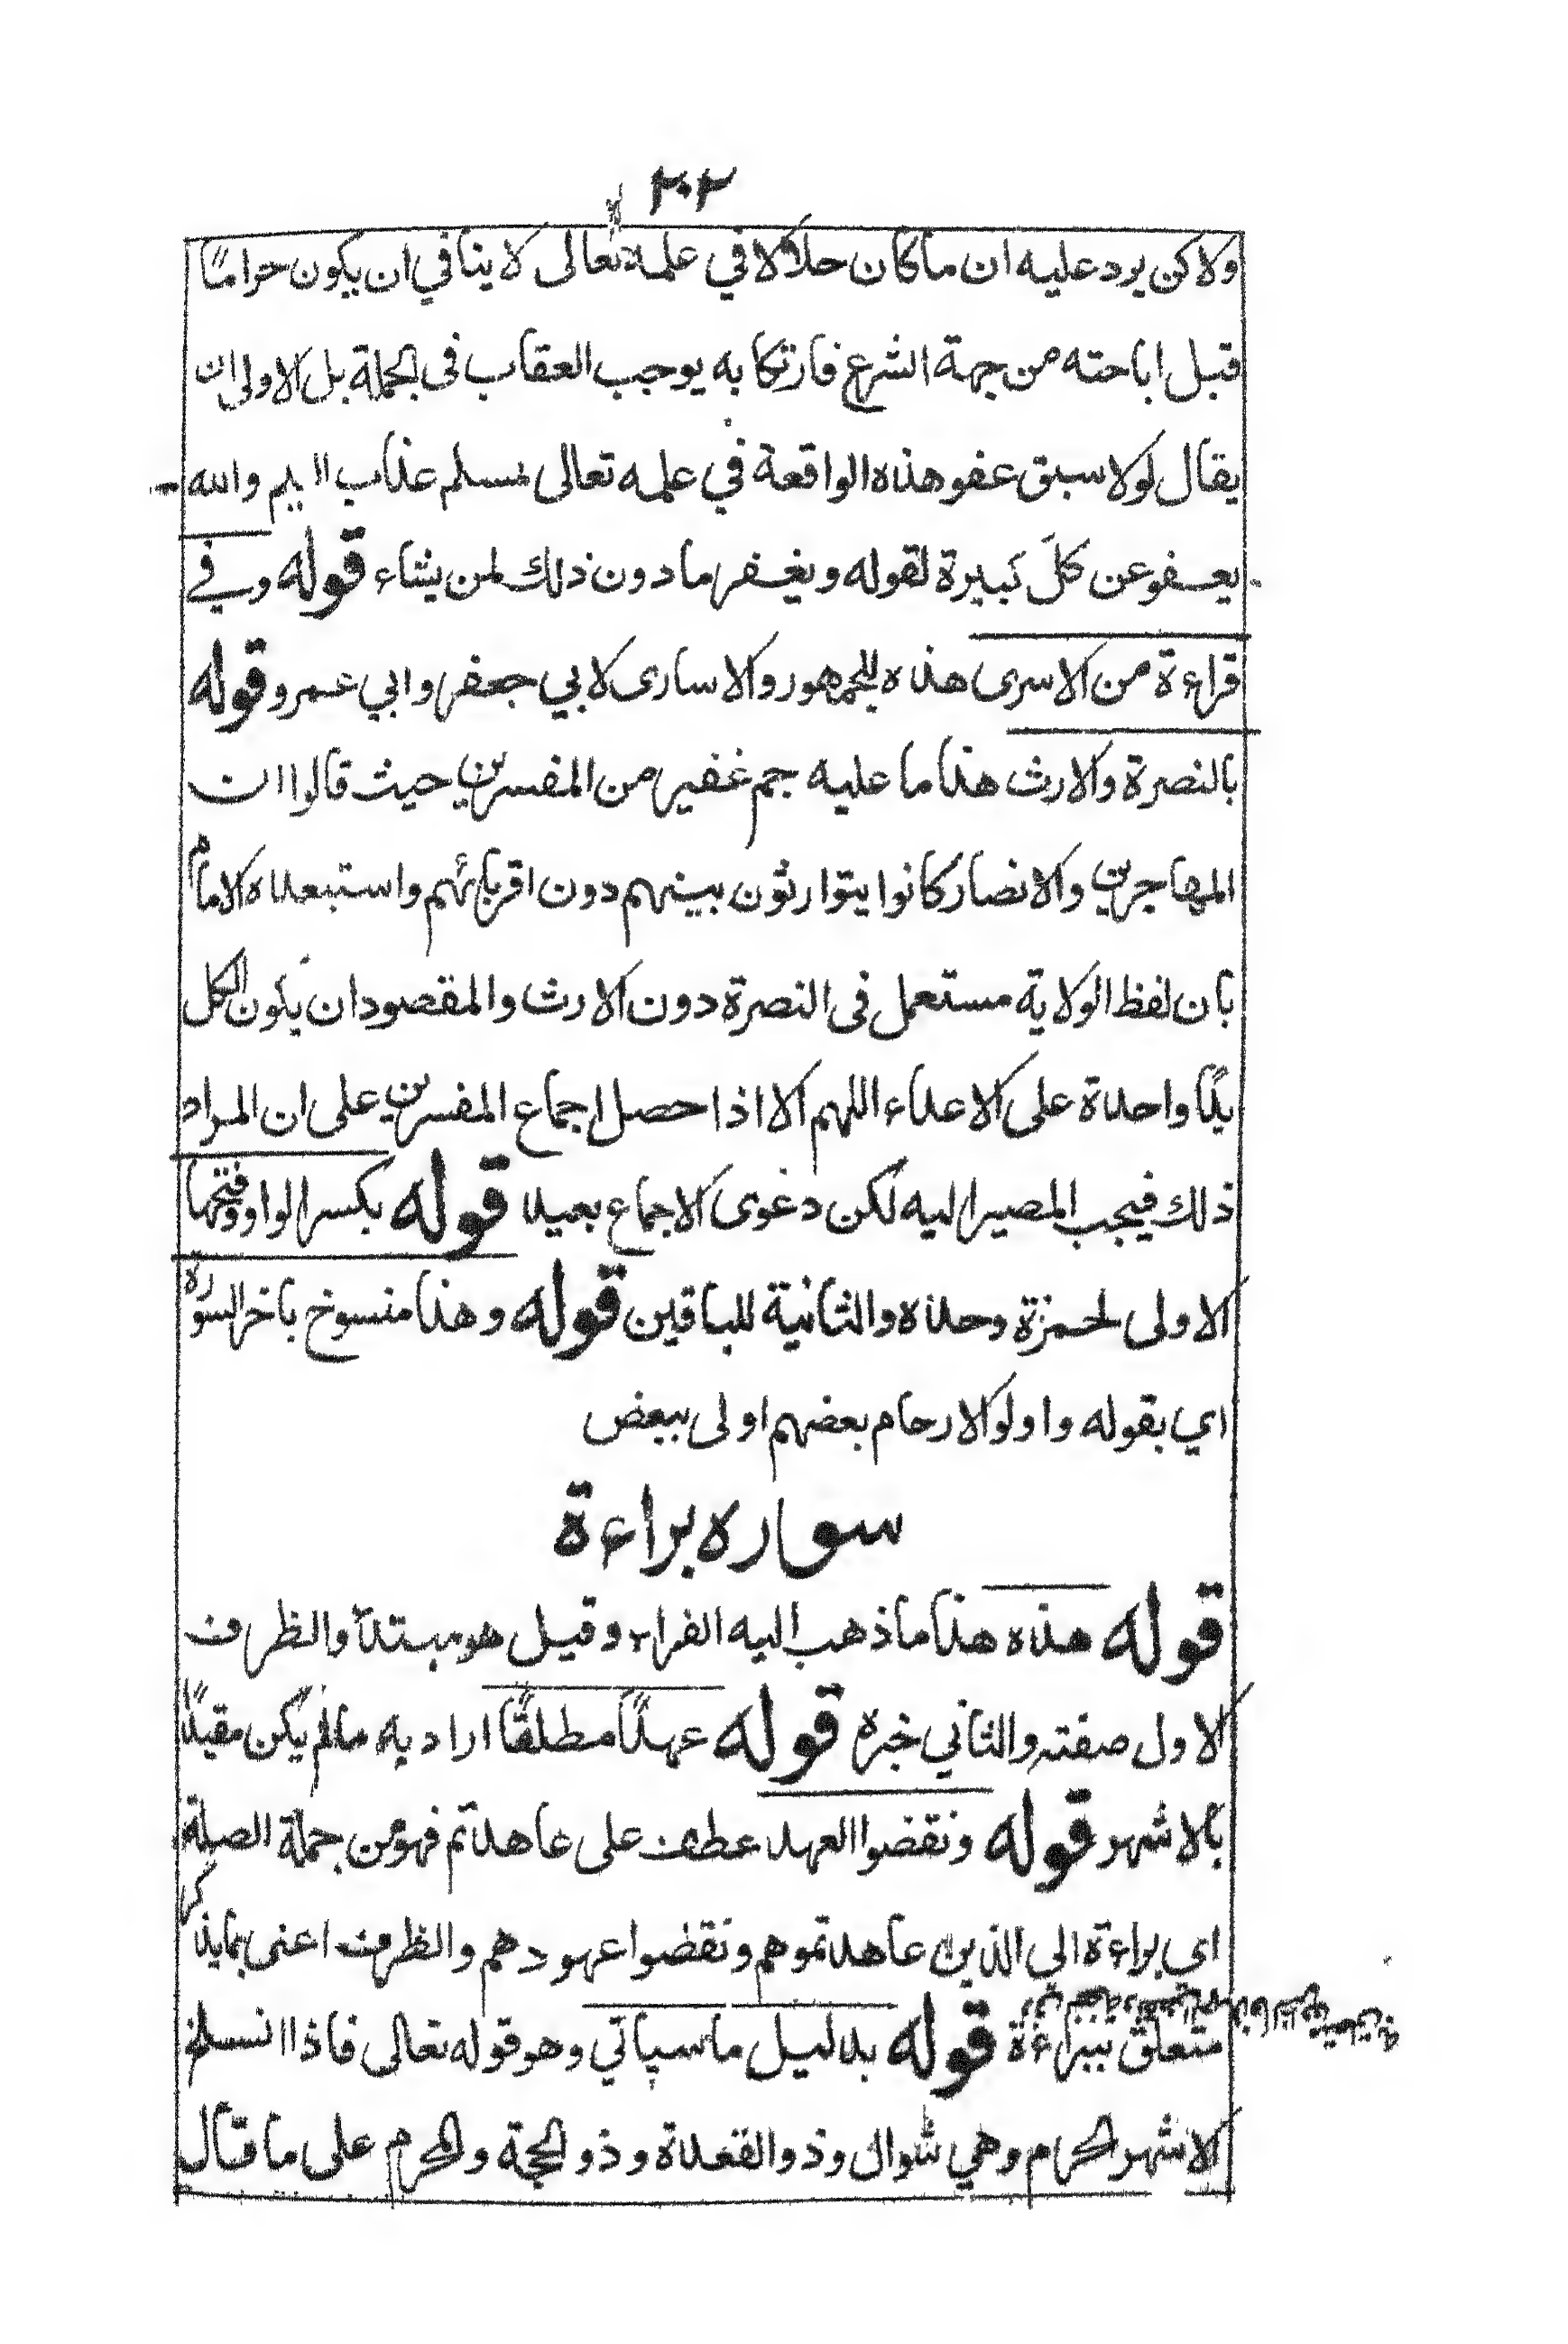 ٢٠٢
ولاكن يرد عليه ان ما كان حلالا في علمه تعالى لا ينافي ان يكون حراما
قبل اباحته من جهة الشرع فارتكابه يوجب العقاب فى الجملة بل الاولى ان
يقال لولا سبق عفو هذه الواقعة في علمه تعالى لمسلم عذاب اليم والله
يعفو عن كلّ كبيرة لقوله ويغفر ما دون ذلك لمن يشاء قوله وفي
قراءة من الاسرى هذه للجمهور والاسارى لابي جعفر وابي عمرو قوله
بالنصرة والارث هذا ما عليه جم غفير من المفسرين حيث قالوا ان
المهاجرين والانصار كانوا يتوارثون بينهم دون اقربائهم واستبعده الامام
بان لفظ الولاية مستعمل فى النصرة دون الارث والمقصود ان يكون الكل
يدًا واحدة على الاعداء اللهم الا اذا حصل اجماع المفسرين على ان المراد
ذلك فيجب المصير اليه لكن دعوى الاجماع بعيد قوله بكسر الواو وفتحها
الاولى لحمزة وحده والثانية للباقين قوله وهذا منسوخ باخر السورة
اي بقوله واولوا الارحام بعضهم اولى ببعض
سوره براءة
قوله هذه هذا ما ذهب اليه الفراء وقيل هو مبتدأ والظرف
الاول صفته والثاني خبره قوله عهدًا مطلقًا اراد به مالم يكن مقيدًا
بالاشهر قوله ونقضوا العهد عطف على عاهدتم فهو من جملة الصلة
اي براءة الى الذين عاهدتموهم ونقضوا عهودهم والظرف اعنى بما يذكر
متعلق ببراءة قوله بدليل ما سياتي وهو قوله تعالى فاذا انسلخ
الاشهر الحرم وهي شوال وذو القعدة وذو الحجة والمحرم على ما قال